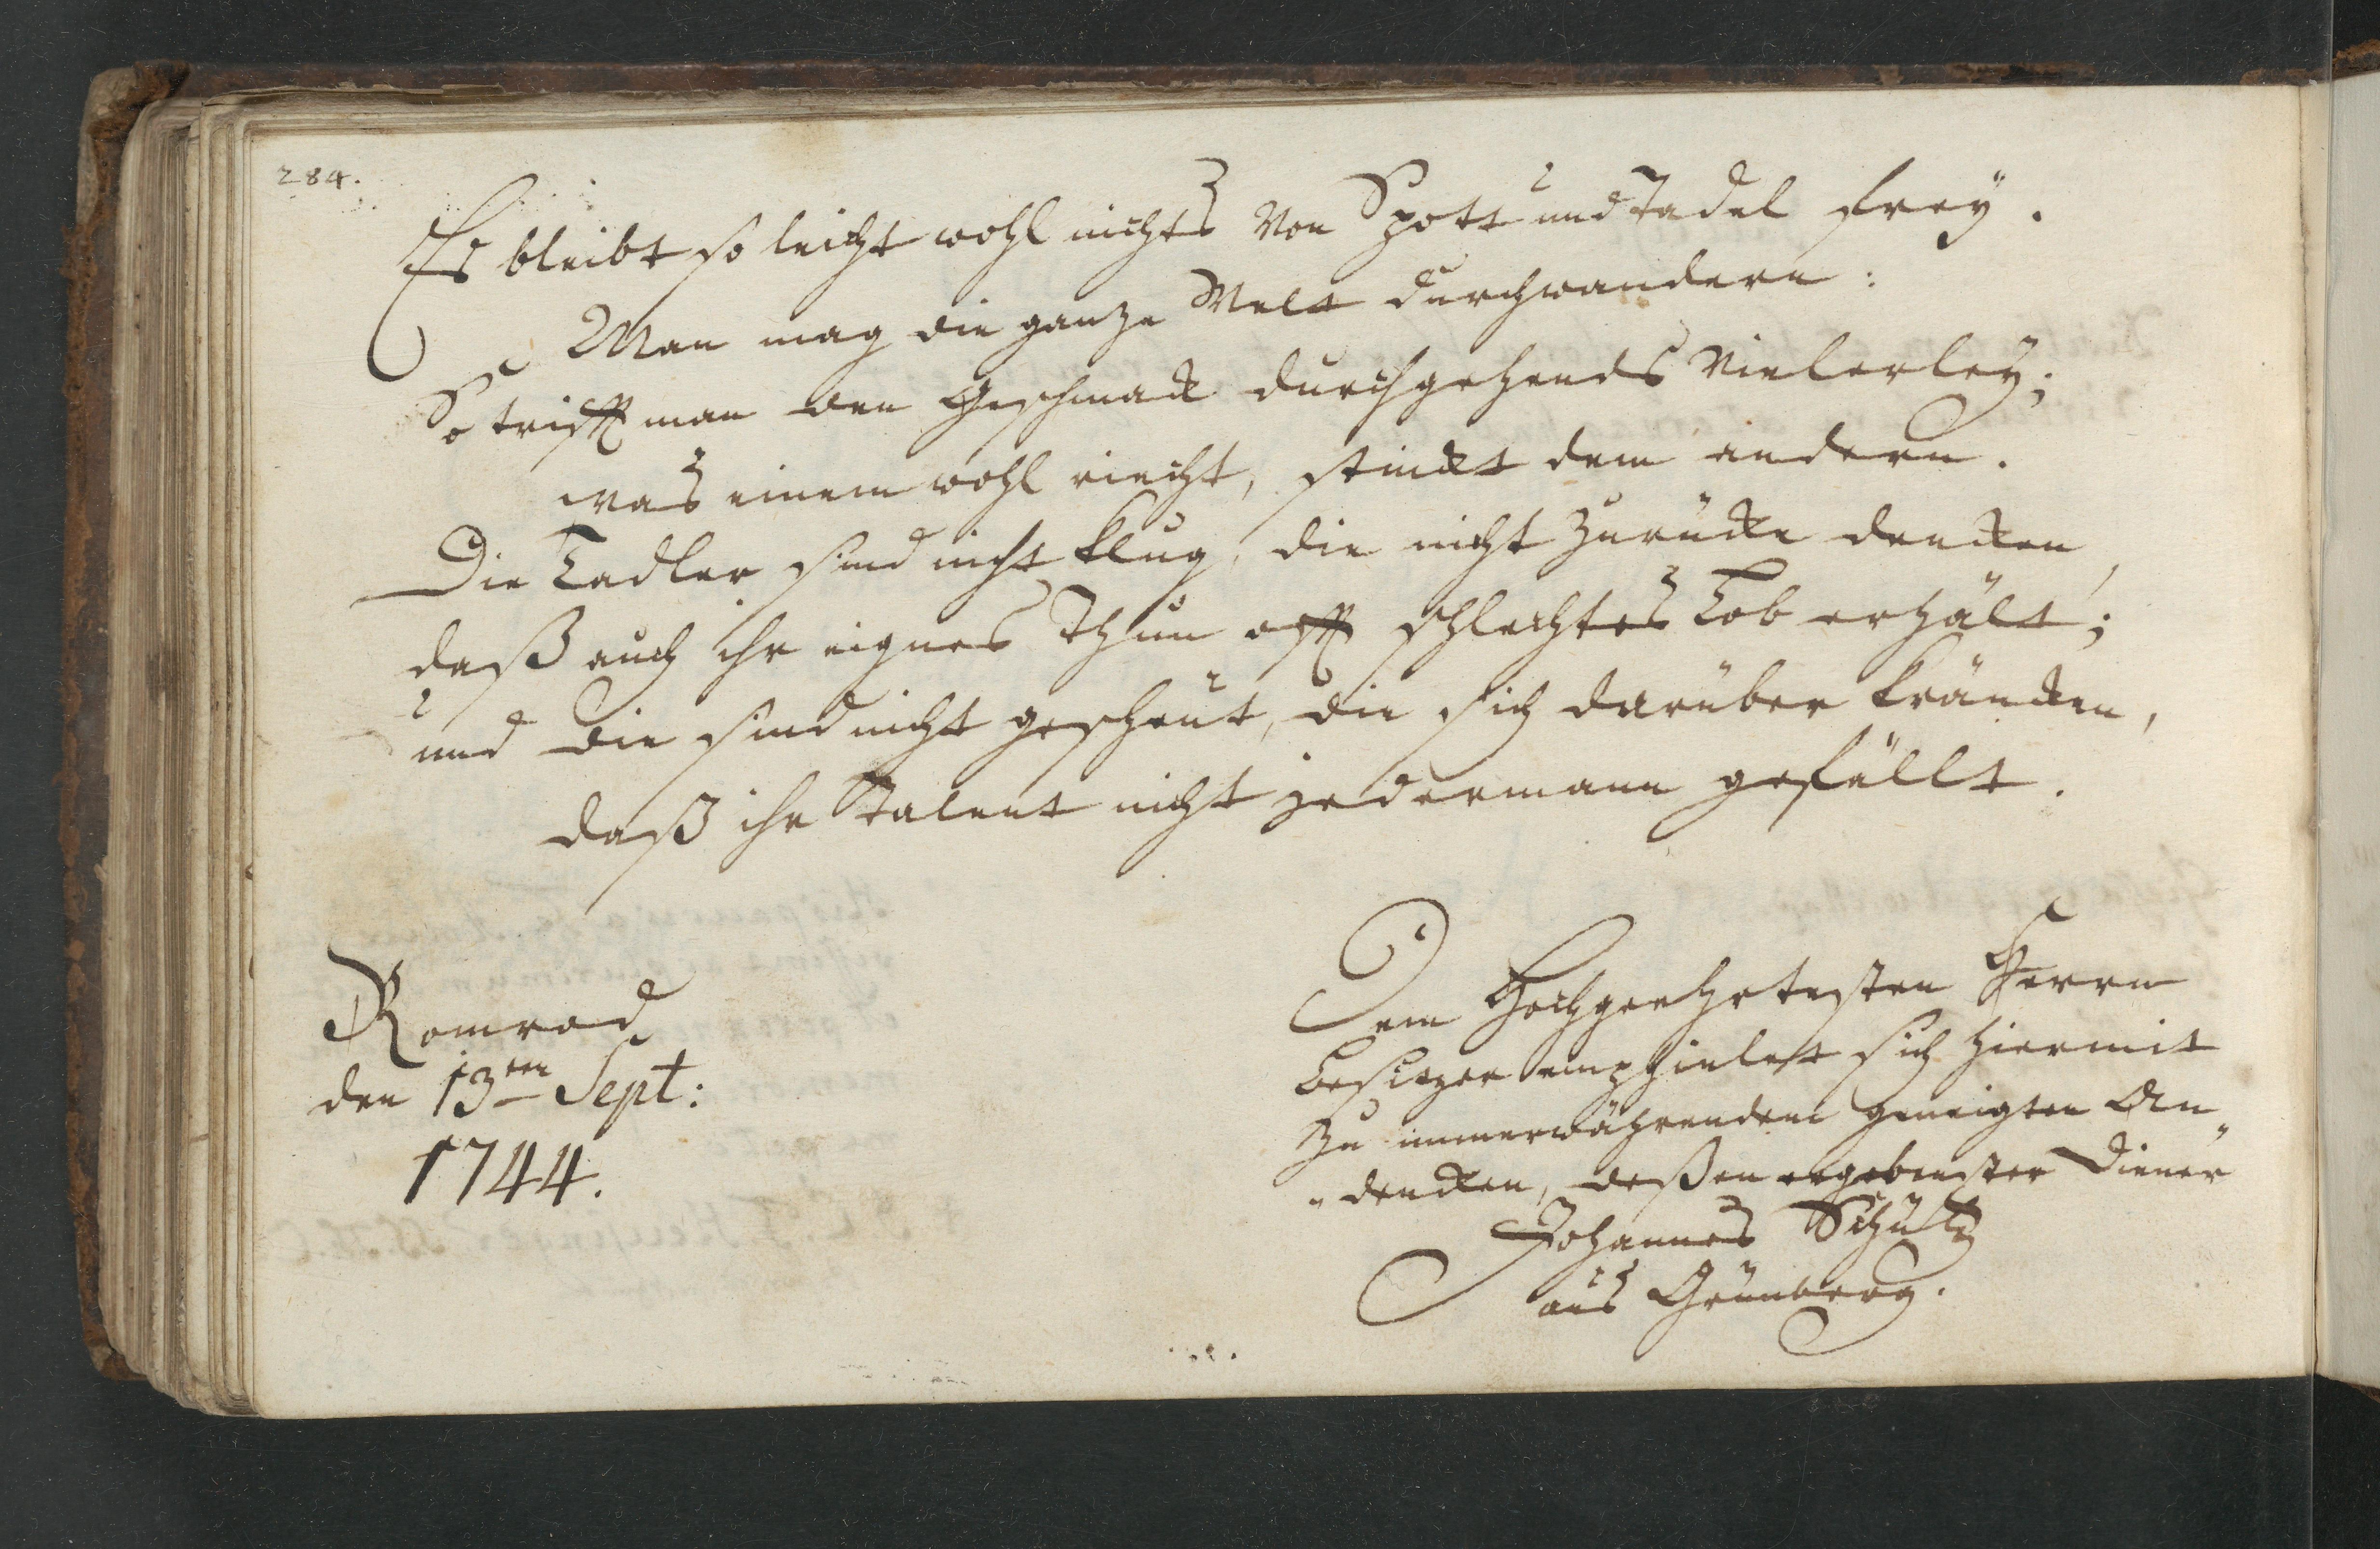 284.
Es bleibt so leicht wohl nichts von Spott und Tadel frey.
Man mag die ganze Welt durchwandern:
So trifft man den Geschmack durchgehends vielerley;
was einem wohl riecht, stinckt dem andern.
Die Tadler sind nicht klug, die nicht zurücke dencken,
daß auch ihr eignes Thun offt schlechtes Lob erhält;
und die sind nicht gescheut, die sich darüber kräncken,
daß ihr Talent nicht jedermann gefällt.
Romrod
den 13ten Sept:
1744.
Dem Hochgeehrtesten Herrn
Besitzer empfiehlet sich hiermit
zu immerwährendem geneigten An"
"dencken, deßen ergebenster Diener
Johannes Schültz
aus Grünberg.